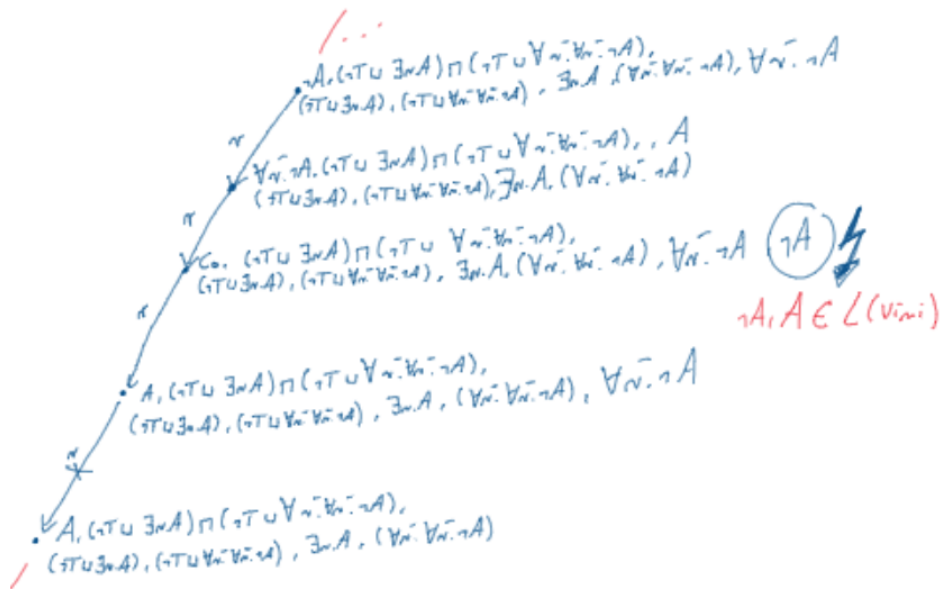 /...
¬A, (¬T ⊔ ∃r.A) ⊓ (¬T ⊔ ∀r⁻.∀r⁻.¬A),
(¬T⊔∃r.A), (¬T⊔∀r⁻.∀r⁻.¬A), ∃r.A, (∀r⁻.∀r⁻.¬A), ∀r⁻.¬A
r
∀r⁻.¬A, (¬T ⊔ ∃r.A) ⊓ (¬T ⊔ ∀r⁻.∀r⁻.¬A), , A
(¬T⊔∃r.A), (¬T⊔∀r⁻.∀r⁻.¬A), ∃r.A, (∀r⁻.∀r⁻.¬A)
r
C₀, (¬T ⊔ ∃r.A) ⊓ (¬T ⊔ ∀r⁻.∀r⁻.¬A),
(¬T⊔∃r.A), (¬T⊔∀r⁻.∀r⁻.¬A), ∃r.A, (∀r⁻.∀r⁻.¬A), ∀r⁻.¬A ¬A
¬A, A ∈ L(vini)
r
A, (¬T ⊔ ∃r.A) ⊓ (¬T ⊔ ∀r⁻.∀r⁻.¬A),
(¬T⊔∃r.A), (¬T⊔∀r⁻.∀r⁻.¬A), ∃r.A, (∀r⁻.∀r⁻.¬A), ∀r⁻.¬A
r
A, (¬T ⊔ ∃r.A) ⊓ (¬T ⊔ ∀r⁻.∀r⁻.¬A),
(¬T⊔∃r.A), (¬T⊔∀r⁻.∀r⁻.¬A), ∃r.A, (∀r⁻.∀r⁻.¬A)